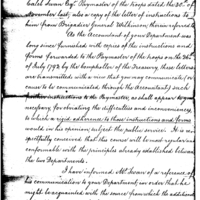 Caleb Swan Esqr Paymaster of the troops dated the 2d. of
November last; also a copy of the letter of instructions to
him from Brigadier General Wilkinson, therein referred to.
As the Accountant of your Department was
long since furnished with copies of the instructions and
forms forwarded to the Paymaster of the troops on the
of July 1792 by the Comptroller of the Treasury, these letters
are transmitted with a view that you may communicate (or
cause to be communicated through the Accountant) such
instructions to the Paymaster, as shall appear
necessary, for obviating the difficulties and inconveniences
to which a rigid adherence to those instructions and forms
would in his opinion subject the public service. It is
respectfully conceived that this would will be nd regulations
conformable with the principles already established between
the two Departments.
I have informed Mr. Swan of a reference of
his communication to your Department, in order that he
might be acquainted with the source from which the additional